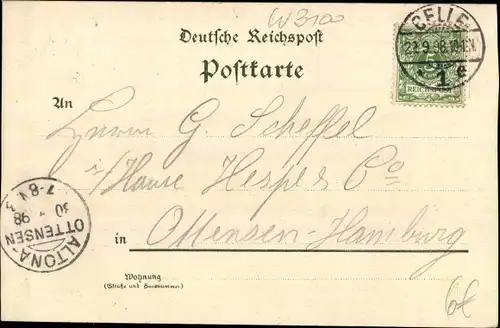 W3100
Deutsche Reichspost
Postkarte
CELLE
29.9.98.10-11.N.
1 e
REICHSPOST
An
Herrn G. Scheffel
i/ Hause Hespe & Co
in Ottensen-Hamburg
ALTONA-
OTTENSEN
30 98
7-8N
3
Wohnung
(Straße und Hausnummer)
6€